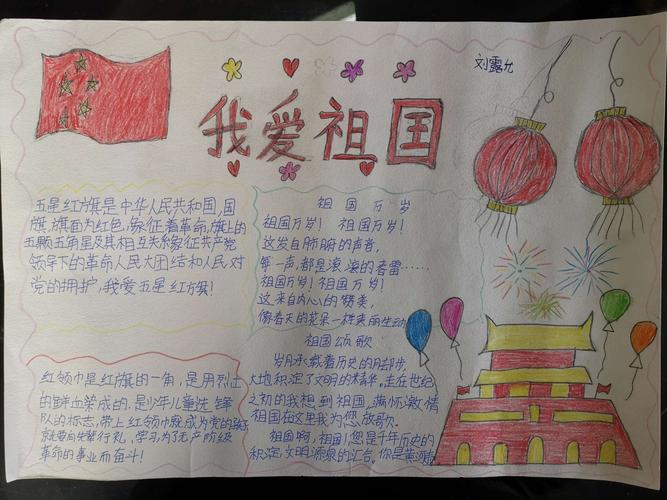 刘露允
我爱祖国
五星红旗是中华人民共和国,国
旗,旗面为红色,象征着革命,旗上的
五颗五角星及其相互关系象征共产党
领导下的革命人民大团结和人民对
党的拥护,我爱五星红旗!
祖国万岁
祖国万岁! 祖国万岁!
这发自肺腑的声音,
每一声,都是滚滚的春雷……
祖国万岁!祖国万岁!
这来自内心的赞美,
像春天的花朵一样美丽生动
祖国颂歌
岁月承载着历史的脚步,
大地积淀了文明的精华。走在世纪
之初的我想到祖国,满怀激情
祖国在这里我为您放歌。
祖国啊,祖国!您是千年历史的
积淀,文明源泉的汇合。你是黄河
红领巾是红旗的一角,是用烈士
的鲜血染成的,是少年儿童先锋
队的标志,带上红领巾就成为党的
就要向先辈行礼,学习为了无产阶级
革命的事业而奋斗!